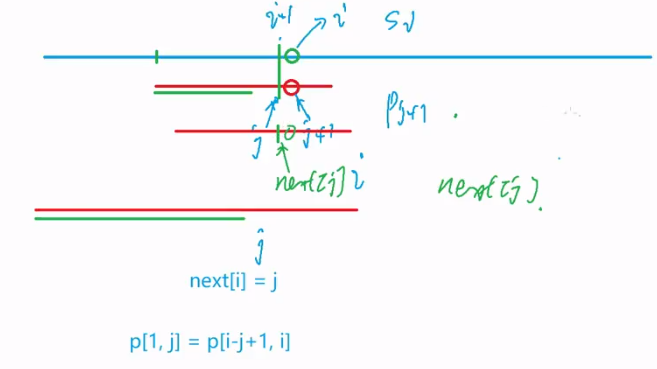 i-1 i S[i]
j j+1 P[j+1]
next[j] i next[j]
j
next[i] = j
p[1, j] = p[i-j+1, i]